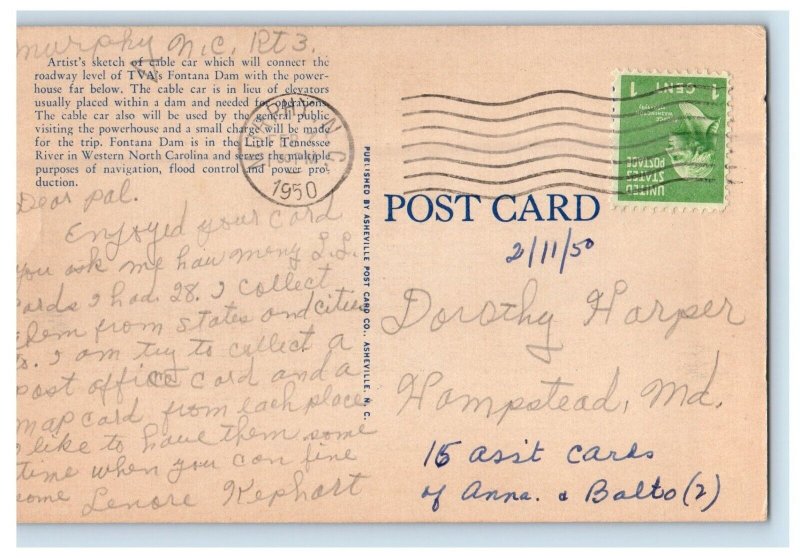 Murphy N.C. Rt 3.
Artist's sketch of cable car which will connect the
roadway level of TVA's Fontana Dam with the power-
house far below. The cable car is in lieu of elevators
usually placed within a dam and needed for operations.
The cable car also will be used by the general public
visiting the powerhouse and a small charge will be made
for the trip. Fontana Dam is in the Little Tennessee
River in Western North Carolina and serves the multiple
purposes of navigation, flood control and power pro-
duction.
Dear Pal.
Enjoyed your card
you ask me how meny L.L.
cards I had. 28. I collect
them from states and cities
I am try to collect a
post office card and a
map card from each place
I like to have them some
time when you can fine
some Lenore Kephart
PUBLISHED BY ASHEVILLE POST CARD CO., ASHEVILLE, N. C.
MURPHY, N.C.
1950
1 CENT 1
UNITED
STATES
POSTAGE
POST CARD
2/11/50
Dorothy Harper
Hampstead, Md.
15 ass't cards
of Anna. & Balto (2)